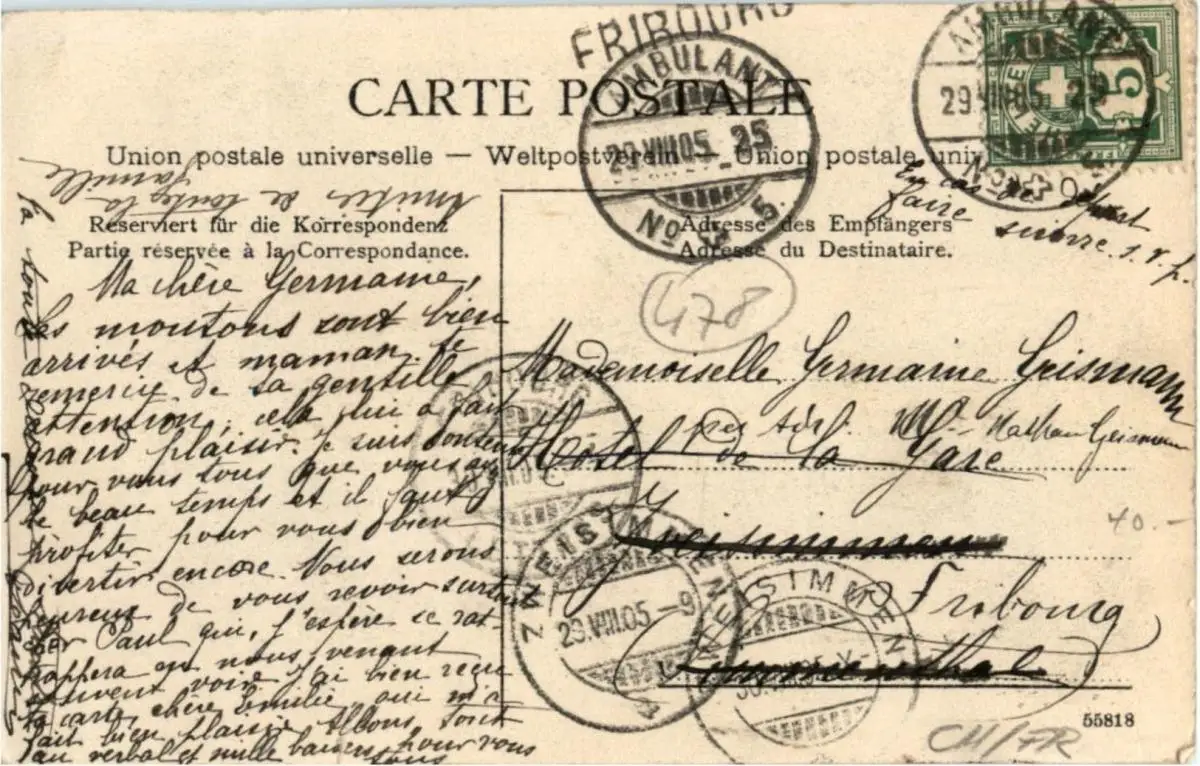 FRIBOURG
AMBULANT
29.VIII.05.-25
No 5.
AMBULANT
29.VIII.05.-25
No
HELVETIA
5
CARTE POSTALE
Union postale universelle — Weltpostverein — Union postale univ
En cas de départ
faire suivre s.v.p.
Amitiés de toute la
famille
Reserviert für die Korrespondenz
Partie réservée à la Correspondance.
Adresse des Empfängers
Adresse du Destinataire.
478
Ma chère Germaine,
Les moutons sont bien
arrivés et maman te
remercie de ta gentille
attention, cela lui a fait
grand plaisir. Je suis content
pour vous tous que vous ayez
le beau temps et il faut
profiter pour vous bien
divertir encore. Nous serons
heureux de vous revoir surtout
cher Paul qui, j'espère se rat
trappera en nous venant
souvent voir. J'ai bien reçu
ta carte, chère Emilie, qui m'a
fait bien plaisir. Allons, tout
au verbal et mille baisers pour vous
tous
Mademoiselle Germaine Geismann
per adr. Mr. Nathan Geismann
Hôtel de la Gare
Zweisimmen
Fribourg
Simmenthal
ZWEISIMMEN
29.VIII.05.-9
ZWEISIMMEN
40.-
55818
CH/FR